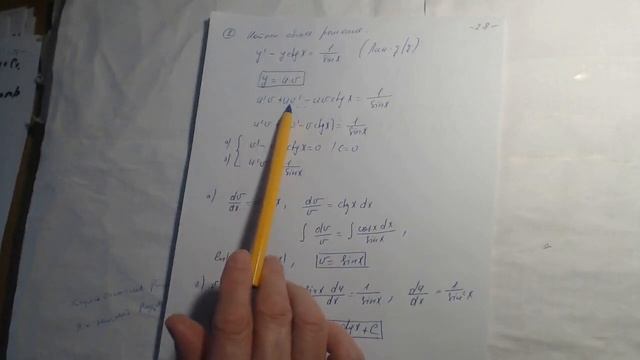 ② Найти общее решение -28-
y' - y ctg x = 1/sin x (Лин. д/у)
y = uv
u'v + uv' - uv ctg x = 1/sin x
u'v v' - v ctg x) = 1/sin x
а) { v' - ctg x = 0 /C=0
б) { u'v 1/sin x
а) dv/dx = x, dv/v = ctg x dx
∫ dv/v = ∫ cos x dx/sin x,
, v = sin x
sin x du/dx = 1/sin x, du/dx = 1/sin² x
ctg x + C